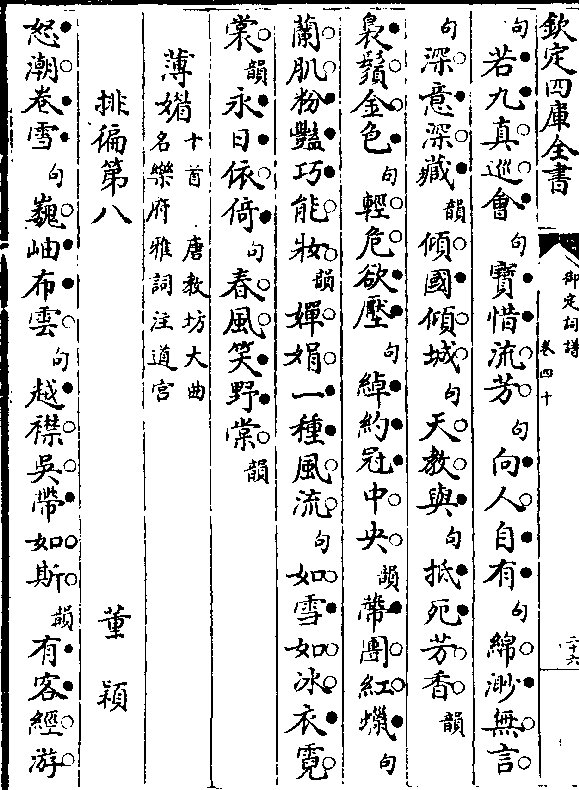 欽定四庫全書
御定詞譜
卷四十
二十六
句若九真巡會句寶惜流芳句向人自有句綿渺無言
句深意深藏韻傾國傾城句天教與句抵死芳香韻
裊鬚金色句輕危欲壓句綽約冠中央韻帶團紅蠟句
蘭肌粉豔巧能妝韻嬋娟一種風流句如雪如冰衣霓
裳韻永日依倚句春風笑野棠韻
薄媚十首 唐教坊大曲名樂府雅詞注道宫
排徧第八 董穎
怒潮卷雪句巍岫布雲句越襟吳帶如斯韻有客經游